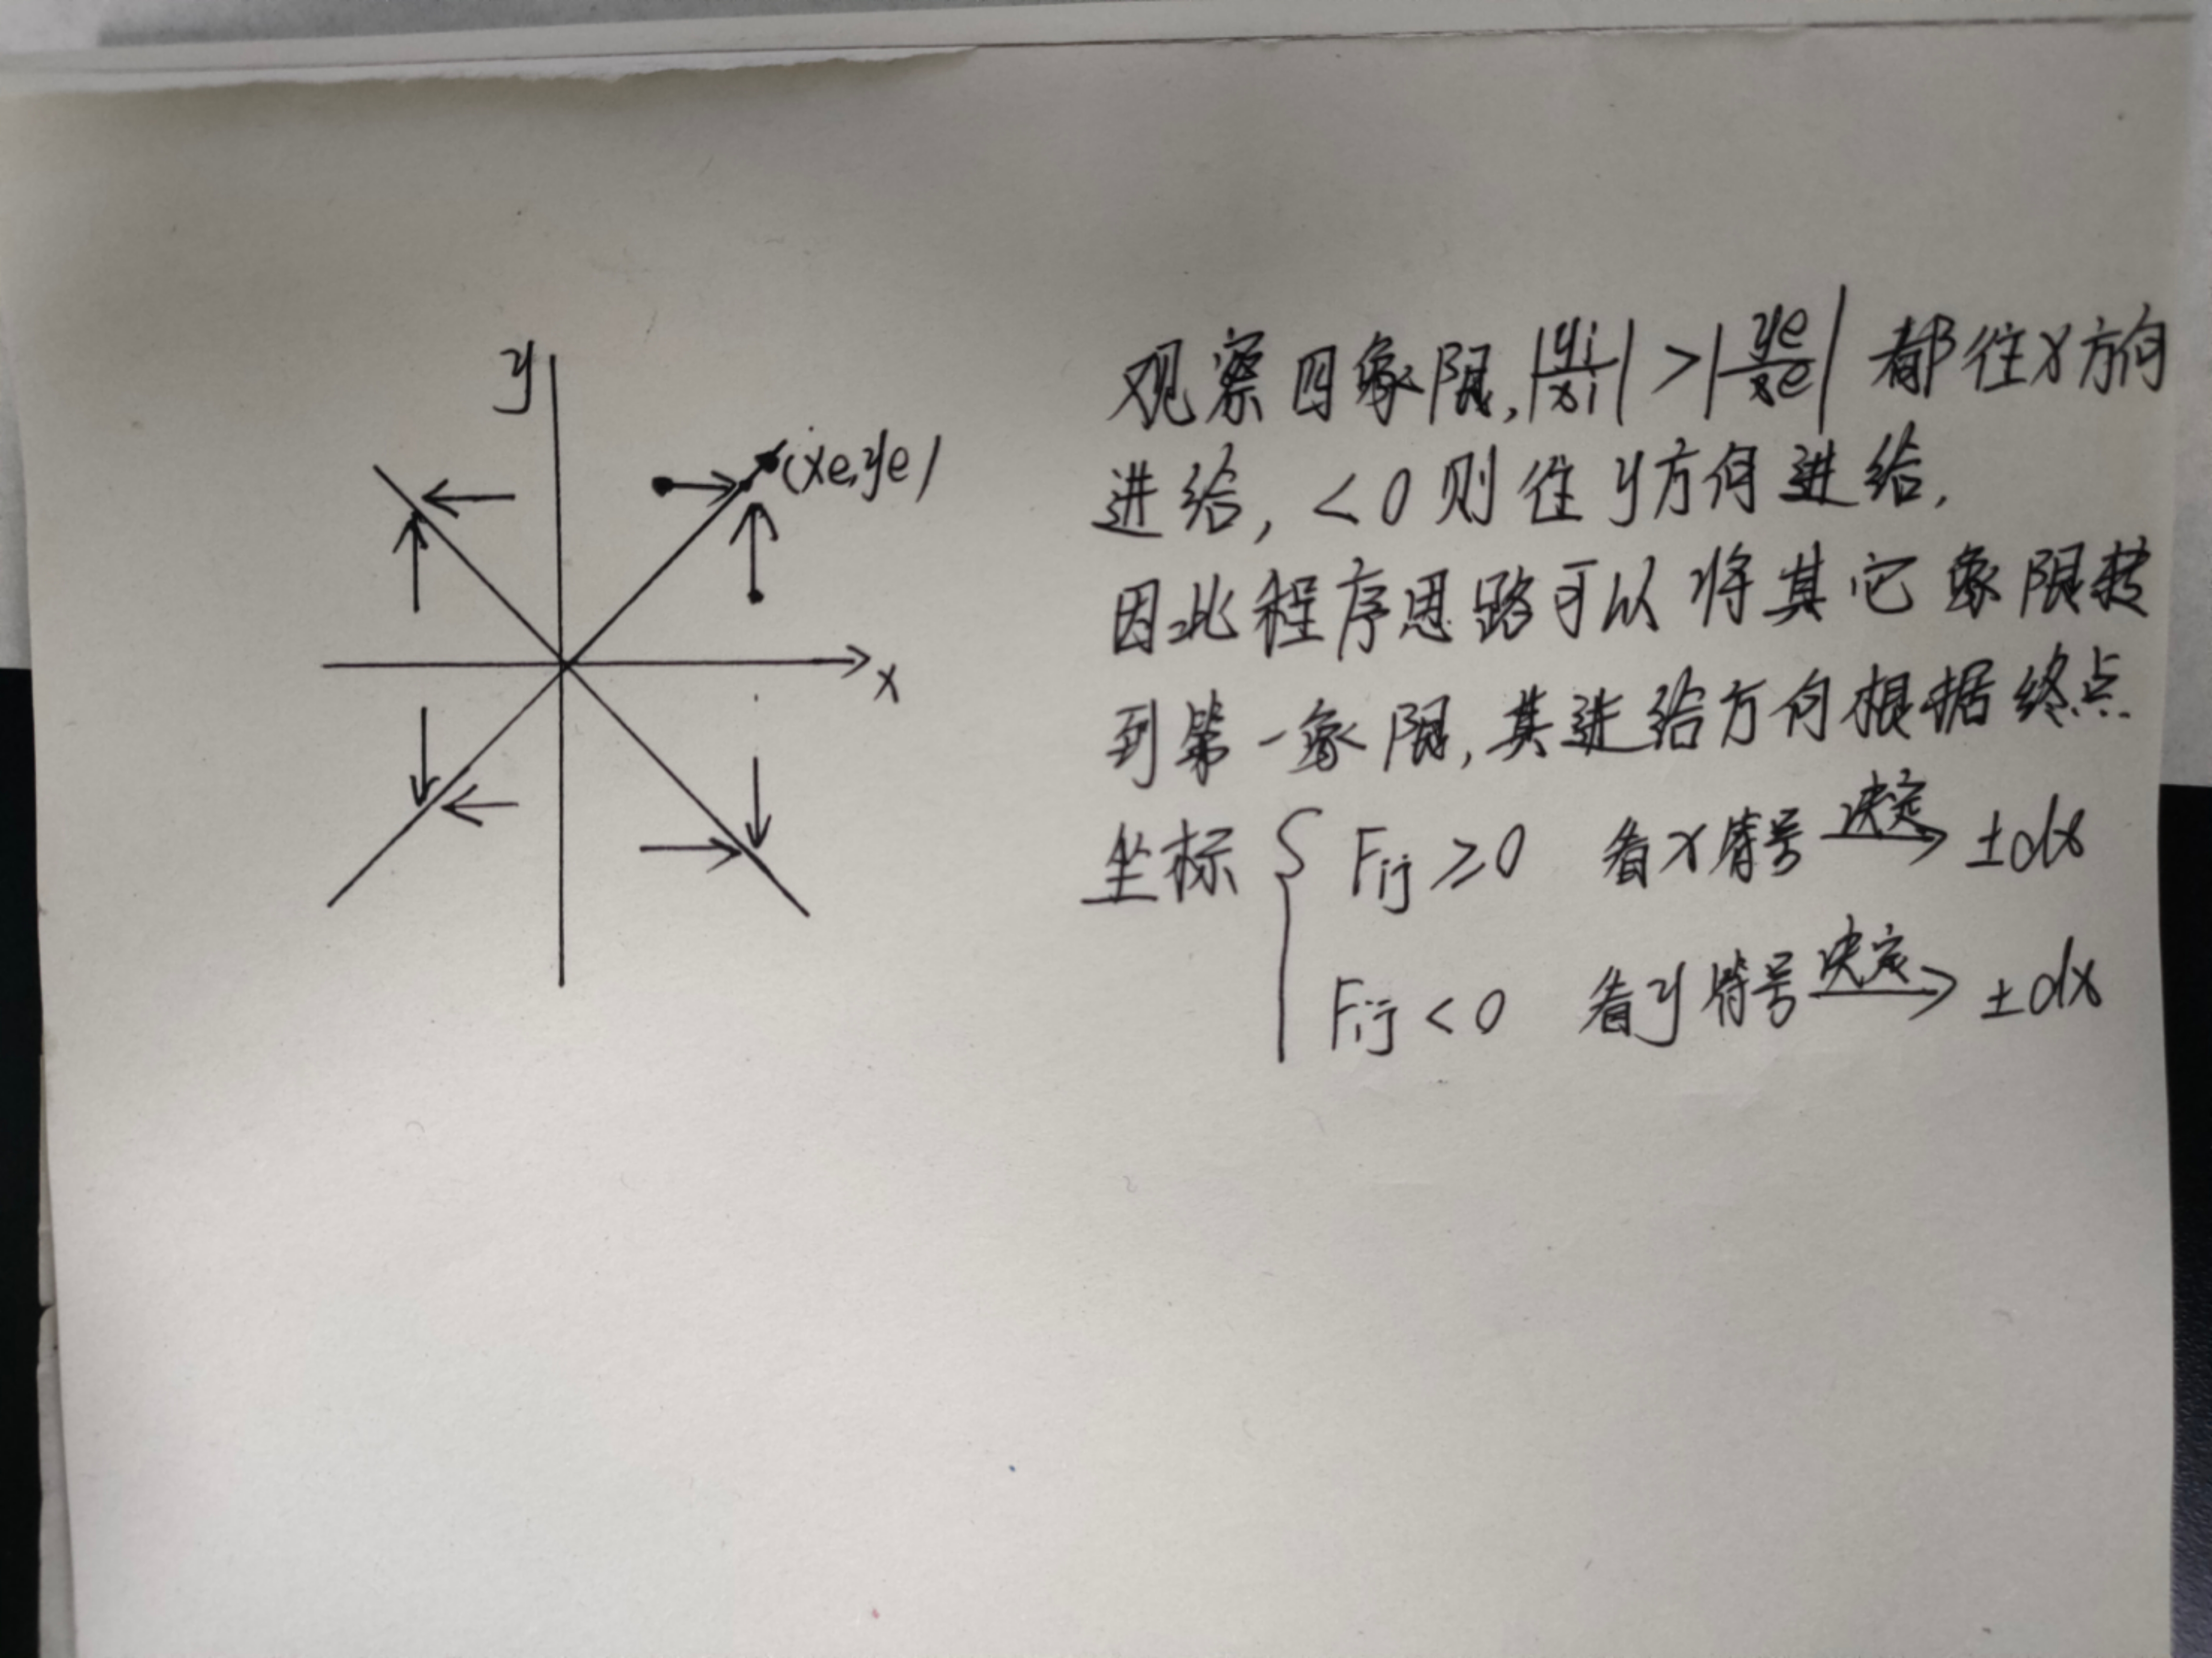 y
(xe,ye)
x
观察四象限,|yi/xi|>|ye/xe| 都往x方向
进给,<0则往y方向进给,
因此程序思路可以将其它象限转
到第一象限,其进给方向根据终点
坐标 { Fij≥0 看x符号 决定→ ±dx
Fij<0 看y符号 决定→ ±dx